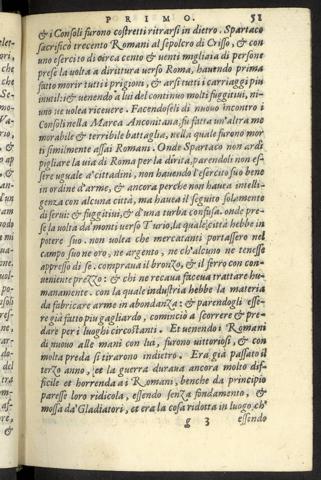 PRIMO. 51
& i Consoli furono costretti ritrarsi in dietro. Spartaco
sacrificò trecento Romani al sepolcro di Crisso, & con
uno esercito di circa cento & uenti migliaia di persone
prese la uolta a dirittura uerso Roma, hauendo prima
fatto morir tutti i prigioni, & arsi tutti i carriaggi piu
inutili: & uenendo a lui del continuo molti fuggitiui, niu
no ne uolea riceuere. Facendoseli di nuouo incontro i
Consoli nella Marca Anconitana, fu fatta un'altra me
morabile & terribile battaglia, nella quale furono mor
ti similmente assai Romani. Onde Spartaco non ardì
pigliare la uia di Roma per la diritta, parendoli non es-
sere uguale a' cittadini, non hauendo l'esercito suo bene
in ordine d'arme, & ancora perche non hauea intelli-
genza con alcuna città, ma hauea il seguito solamente
di serui: & fuggitiui, & d'una turba confusa. onde pre-
se la uolta da monti uerso Turio, la quale città hebbe in
potere suo. non uolea che mercatanti portassero nel
campo suo ne oro, ne argento, ne ch'alcuno ne tenesse
appresso di se. compraua il bronzo, & il ferro con con-
ueniente prezzo: & chi ne recaua faceua trattare hu-
manamente. con la quale industria hebbe la materia
da fabricare arme in abondanza: & parendogli esse-
re già fatto piu gagliardo, cominciò a scorrere & pre-
dare per i luoghi circostanti. Et uenendo i Romani
di nuouo alle mani con lui, furono uittoriosi, & con
molta preda si tirarono indietro. Era già passato il
terzo anno, et la guerra duraua ancora molto dif-
ficile et horrenda ai Romani, benche da principio
paresse loro ridicola, essendo senza fondamento, &
mossa da' Gladiatori, et era la cosa ridotta in luogo ch'
g 3 essendo